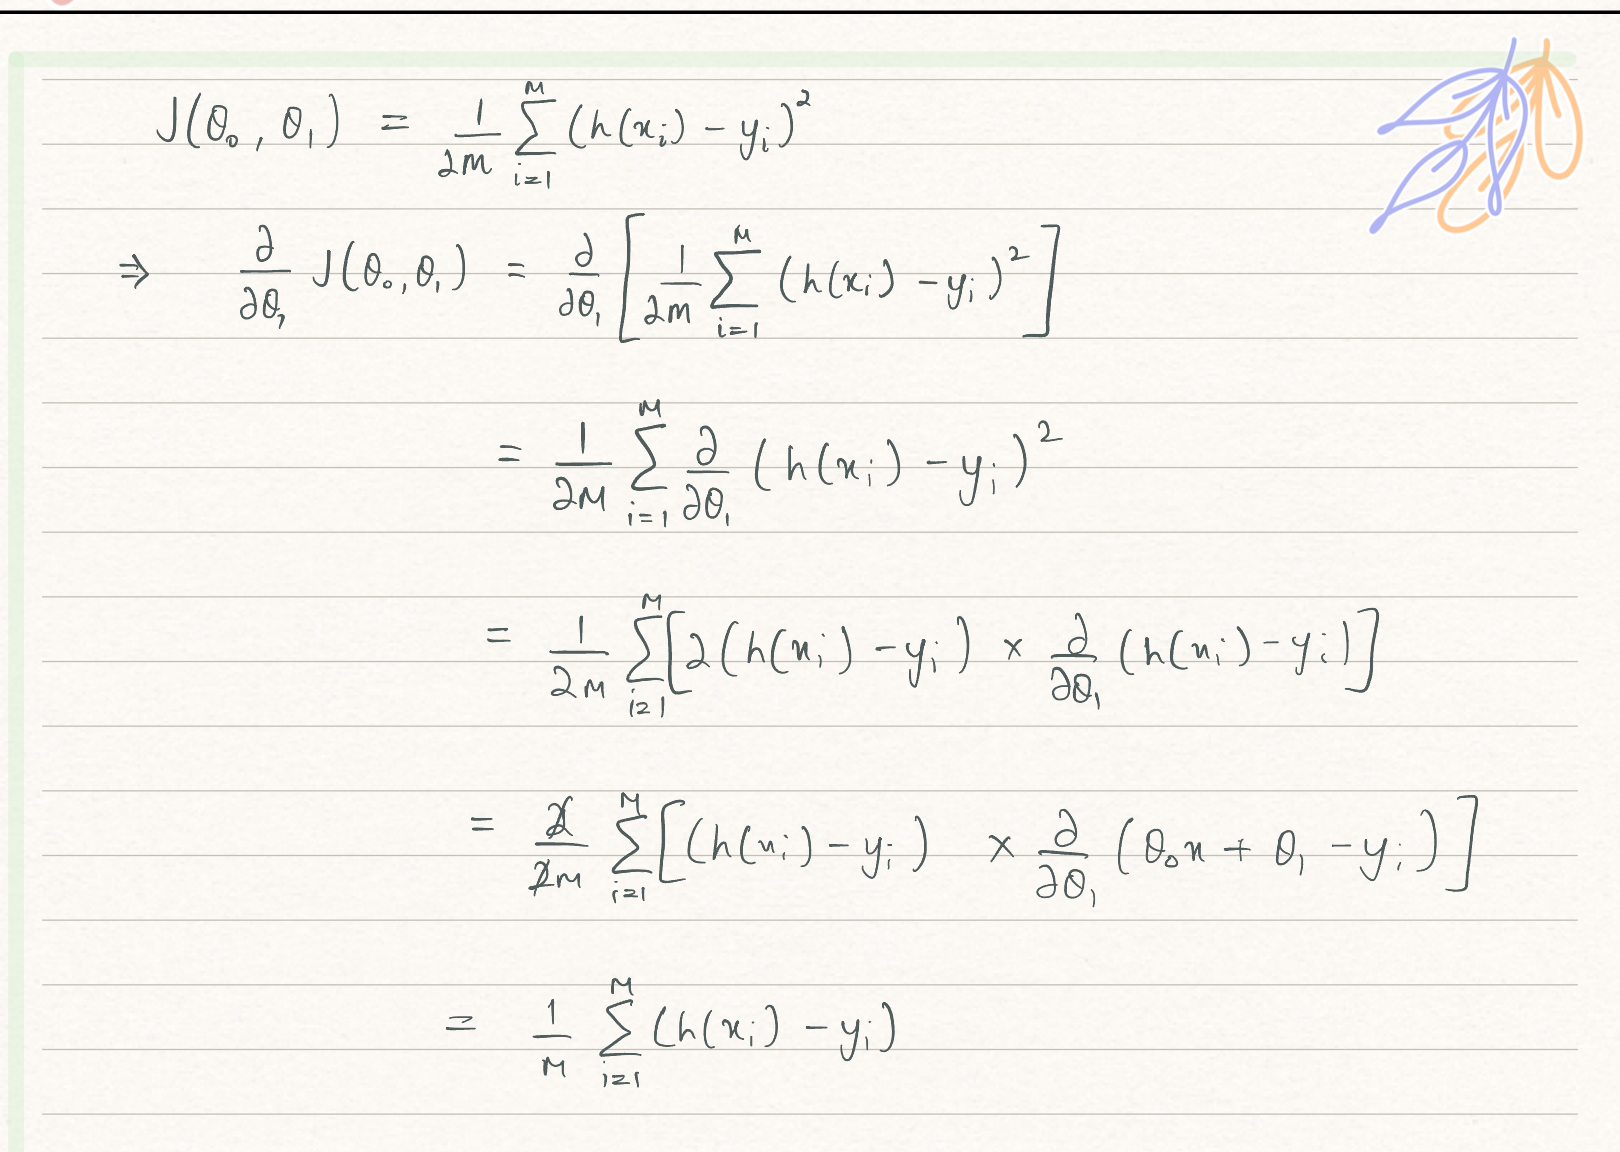 J(θ₀, θ₁) = 1/2m ∑_{i=1}^{m} (h(xᵢ) - yᵢ)²
⇒ ∂/∂θ₁ J(θ₀, θ₁) = ∂/∂θ₁ [ 1/2m ∑_{i=1}^{m} (h(xᵢ) - yᵢ)² ]
= 1/2m ∑_{i=1}^{m} ∂/∂θ₁ (h(xᵢ) - yᵢ)²
= 1/2m ∑_{i=1}^{m} [ 2(h(xᵢ) - yᵢ) × ∂/∂θ₁ (h(xᵢ) - yᵢ) ]
= 2/2m ∑_{i=1}^{m} [ (h(xᵢ) - yᵢ) × ∂/∂θ₁ (θ₀x + θ₁ - yᵢ) ]
= 1/m ∑_{i=1}^{m} (h(xᵢ) - yᵢ)